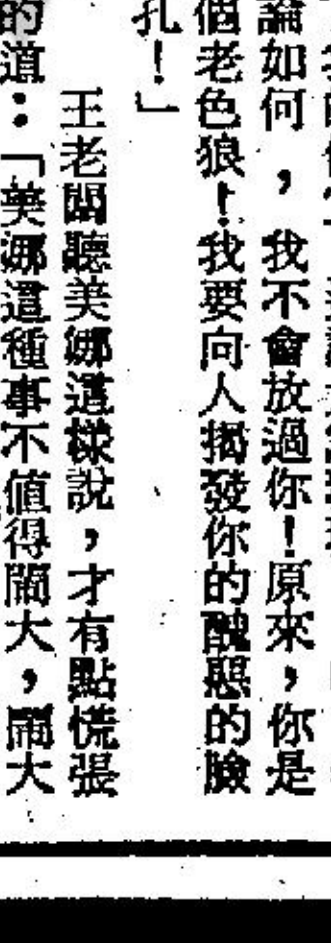 論如何，我不會放過你！原來，你是
個老色狼！我要向人揭發你的醜惡的臉
孔！」
王老闆聽美娜這樣說，才有點慌張
的道：「美娜這種事不值得鬧大，鬧大